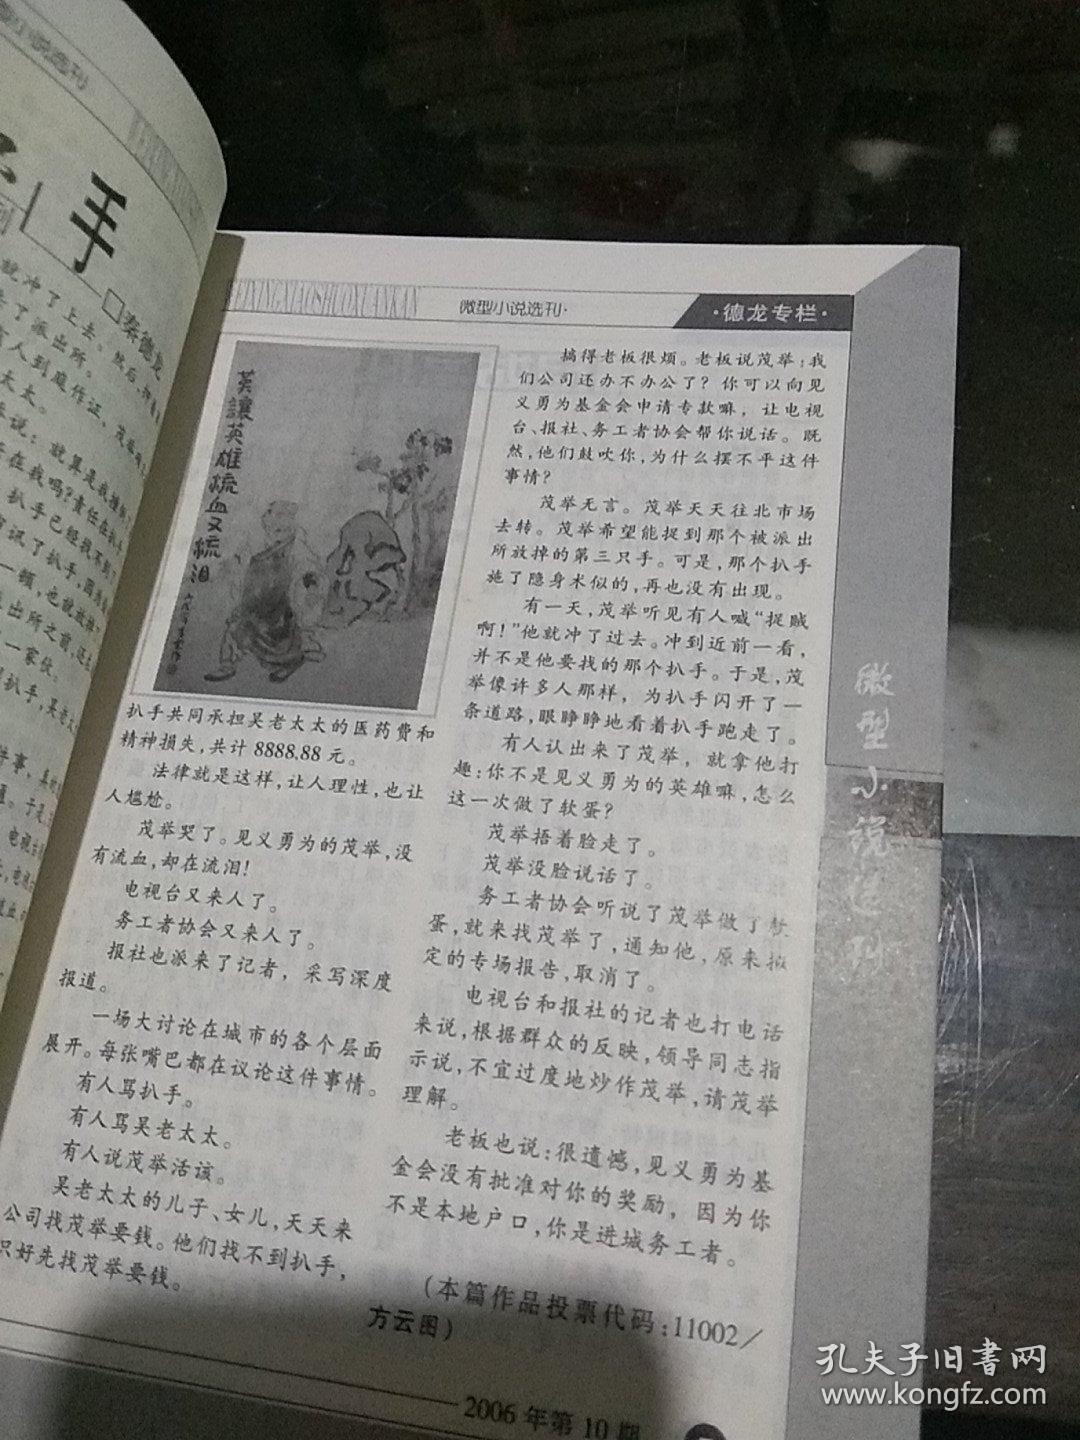 手
□秦德龙
就冲了上去。然后,
了派出所。
有人到庭作证。茂举
太太。
说:就算是我撞
在我吗?责任在扒手
扒手已经找不到了
讯了扒手,因为
一顿,也就放掉
出所之前,还
一家伙。
扒手,吴老太
件事,真
于是
电视台
微型小说选刊·
·德龙专栏·
莫让英雄流血又流泪
扒手共同承担吴老太太的医药费和
精神损失,共计8888.88元。
法律就是这样,让人理性,也让
人尴尬。
茂举哭了。见义勇为的茂举,没
有流血,却在流泪!
电视台又来人了。
务工者协会又来人了。
报社也派来了记者,采写深度
报道。
一场大讨论在城市的各个层面
展开。每张嘴巴都在议论这件事情。
有人骂扒手。
有人骂吴老太太。
有人说茂举活该。
吴老太太的儿子、女儿,天天来
公司找茂举要钱。他们找不到扒手,
只好先找茂举要钱。
搞得老板很烦。老板说茂举:我
们公司还办不办公了?你可以向见
义勇为基金会申请专款嘛,让电视
台、报社、务工者协会帮你说话。既
然,他们鼓吹你,为什么摆不平这件
事情?
茂举无言。茂举天天往北市场
去转。茂举希望能捉到那个被派出
所放掉的第三只手。可是,那个扒手
施了隐身术似的,再也没有出现。
有一天,茂举听见有人喊“捉贼
啊!”他就冲了过去。冲到近前一看,
并不是他要找的那个扒手。于是,茂
举像许多人那样,为扒手闪开了一
条道路,眼睁睁地看着扒手跑走了。
有人认出来了茂举,就拿他打
趣:你不是见义勇为的英雄嘛,怎么
这一次做了软蛋?
茂举捂着脸走了。
茂举没脸说话了。
务工者协会听说了茂举做了软
蛋,就来找茂举了,通知他,原来拟
定的专场报告,取消了。
电视台和报社的记者也打电话
来说,根据群众的反映,领导同志指
示说,不宜过度地炒作茂举,请茂举
理解。
老板也说:很遗憾,见义勇为基
金会没有批准对你的奖励,因为你
不是本地户口,你是进城务工者。
(本篇作品投票代码:11002/
方云图)
微型小说选刊
2006年第10期
孔夫子旧书网
www.kongfz.com